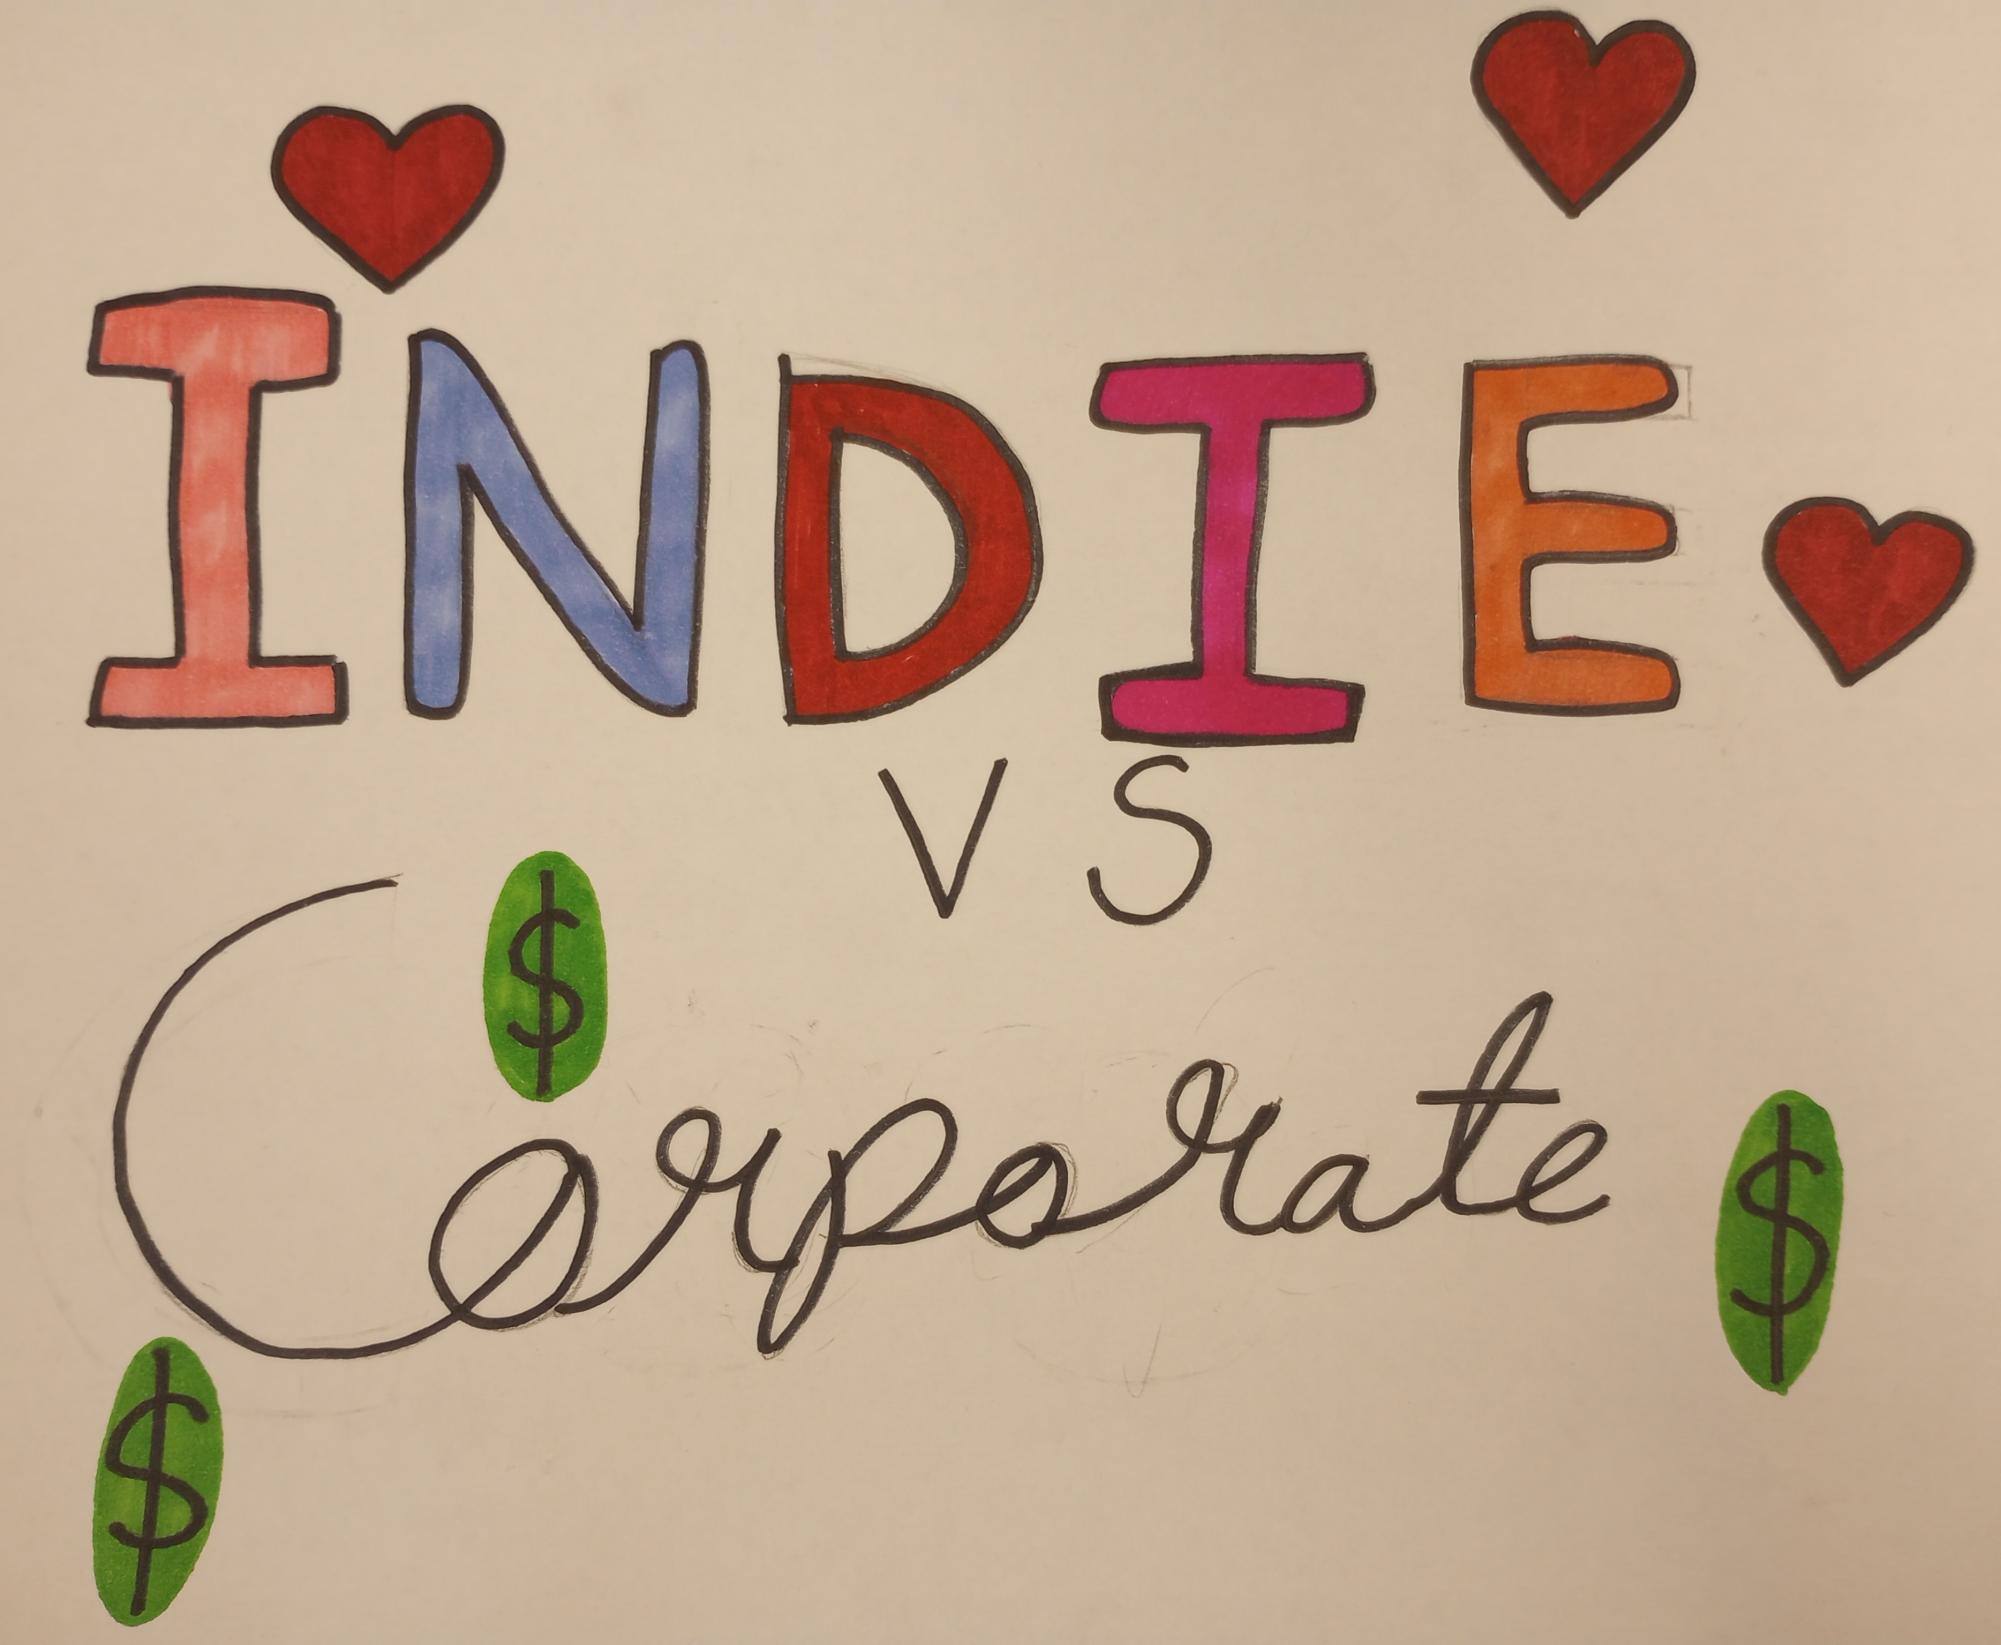 INDIE
VS
$
Corporate
$
$